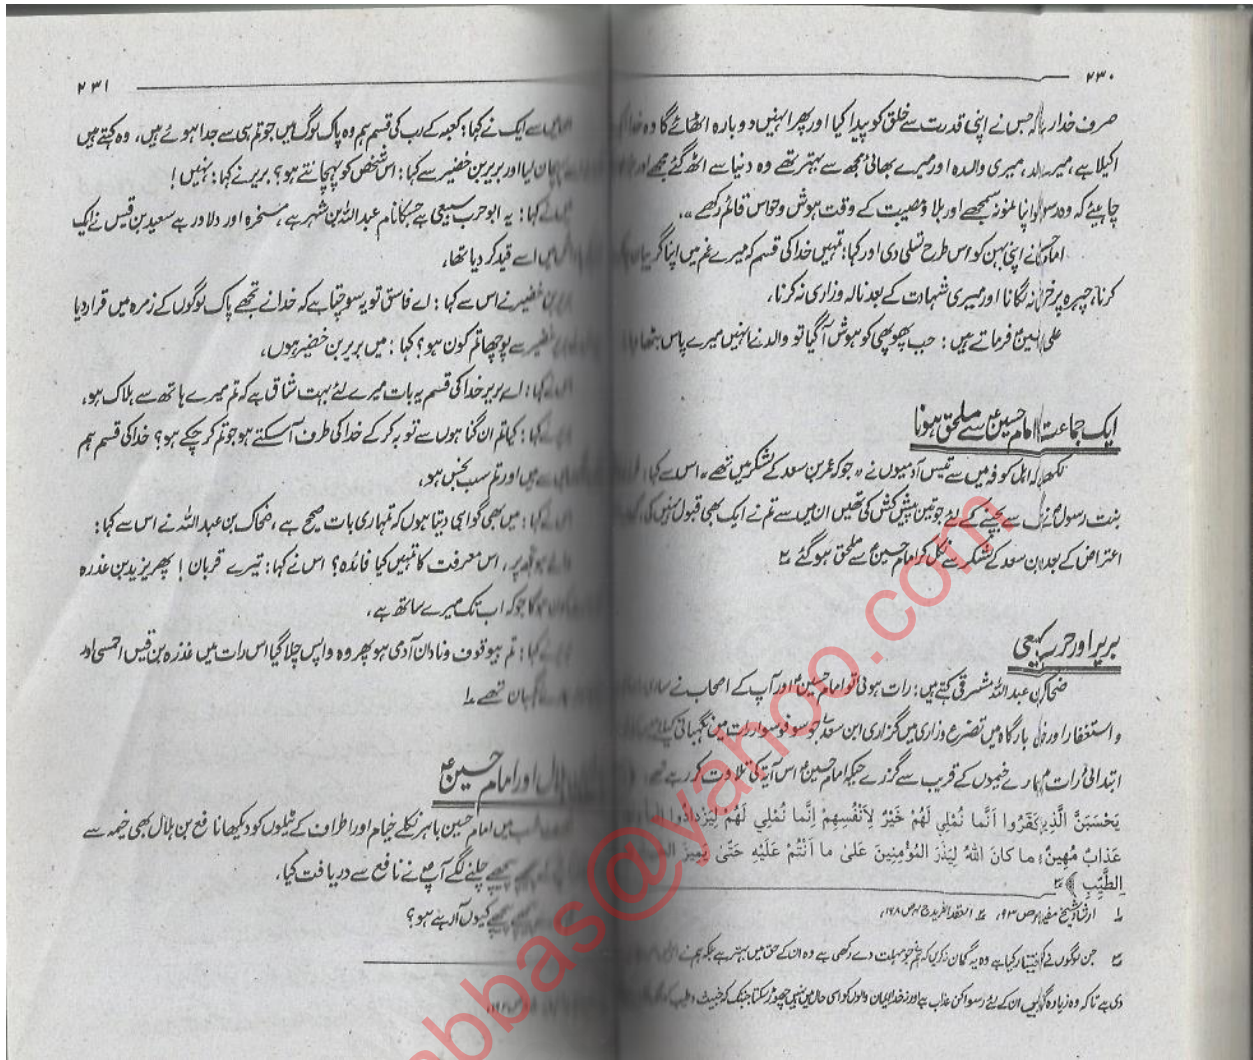 ۲۳۰
صرف خدا رہا کہ جس نے اپنی قدرت سے خلق کو پیدا کیا اور پھر انہیں دوبارہ اٹھائے گا وہ خدا
اکیلا ہے، میرے والد، میری والدہ اور میرے بھائی مجھ سے بہتر تھے وہ دنیا سے اٹھ گئے مجھے اور
چاہیئے کہ وہ رسول کو اپنا نمونہ سمجھے اور بلا و مصیبت کے وقت ہوش و حواس قائم رکھے۔
امام نے اپنی بہن کو اس طرح تسلی دی اور کہا: تمہیں خدا کی قسم کہ میرے غم میں اپنا گریبان
کرنا، چہرہ پر خراش نہ لگانا اور میری شہادت کے بعد نالہ و زاری نہ کرنا،
علی بن الحسین فرماتے ہیں: جب پھوپھی کو ہوش آ گیا تو والد نے انہیں میرے پاس بٹھا
ایک جماعت کا امام حسین سے ملحق ہونا
لکھا ہے کہ اہل کوفہ میں سے تیس آدمیوں نے "جو کہ عمر بن سعد کے لشکر میں تھے" اس سے کہا:
بنت رسول نے جنگ سے بچنے کے لئے جو تین پیش کش کی تھیں ان میں سے تم نے ایک بھی قبول نہیں کی،
اعتراض کے بعد ابن سعد کے لشکر سے نکل کر امام حسین سے ملحق ہو گئے ۲
بریر اور حرب سبیعی
ضحاک بن عبداللہ مشرقی کہتے ہیں: رات ہوئی تو امام حسین اور آپ کے اصحاب نے ساری
و استغفار اور خدا کی بارگاہ میں تضرع و زاری میں گزاری ابن سعد کے جو سو سوار رات میں نگہبانی کیلئے
ابتدائی رات میں ہمارے خیموں کے قریب سے گزرے جبکہ امام حسین اس آیۃ کی تلاوت کر رہے تھے:
یَحْسَبَنَّ الَّذِینَ کَفَرُوا أَنَّما نُمْلِي لَهُمْ خَيْرٌ لِأَنْفُسِهِمْ إِنَّما نُمْلِي لَهُمْ لِيَزْدادُوا إِثْماً
عَذابٌ مُهِينٌ؛ ما كانَ اللهُ لِيَذَرَ الْمُؤْمِنِينَ عَلىٰ ما أَنْتُمْ عَلَيْهِ حَتّىٰ يَمِيزَ
الطَّيِّبِ﴾
۱ ارشاد شیخ مفید ج ۲ ص ۹۳، ۲ العقد الفرید ج ۴ ص ۱۶۸،
جن لوگوں نے کفر اختیار کیا ہے وہ یہ گمان نہ کریں کہ ہم نے جو مہلت دے رکھی ہے وہ ان کے حق میں بہتر ہے بلکہ ہم نے
دی ہے تاکہ وہ زیادہ گناہ کریں ان کے لئے رسوا کن عذاب ہے اور خدا ایمان والوں کو اسی حال میں نہیں چھوڑ سکتا جب تک کہ خبیث و طیب کو
۲۳۱
میں سے ایک نے کہا: کعبہ کے رب کی قسم ہم وہ پاک لوگ ہیں جو تم ہی سے جدا ہوئے ہیں، وہ کہتے ہیں
پہچان لیا اور بریر بن خضیر سے کہا: اس شخص کو پہچانتے ہو؟ بریر نے کہا: نہیں!
میں نے کہا: یہ ابو حرب سبیعی ہے جسکا نام عبداللہ بن شہر ہے، مسخرہ اور دلاور ہے سعید بن قیس نے ایک
میں اسے قید کر دیا تھا،
بریر بن خضیر نے اس سے کہا: اے فاسق تو یہ سوچتا ہے کہ خدا نے تجھے پاک لوگوں کے زمرہ میں قرار دیا
خضیر سے پوچھا تم کون ہو؟ کہا: میں بریر بن خضیر ہوں،
اس نے کہا: اے بریر خدا کی قسم یہ بات میرے لئے بہت شاق ہے کہ تم میرے ہاتھ سے ہلاک ہو،
بریر نے کہا: کیا تم ان گناہوں سے توبہ کر کے خدا کی طرف آ سکتے ہو جو تم کر چکے ہو؟ خدا کی قسم ہم
ہیں اور تم سب نجس ہو،
اس نے کہا: میں بھی گواہی دیتا ہوں کہ تمہاری بات صحیح ہے، ضحاک بن عبداللہ نے اس سے کہا:
وائے ہو تجھ پر، اس معرفت کا تمہیں کیا فائدہ؟ اس نے کہا: تیرے قربان! پھر یزید بن عذرہ
کون ہوگا جو کہ اب تک میرے ساتھ ہے،
بریر نے کہا: تم بیوقوف و نادان آدمی ہو پھر وہ واپس چلا گیا اس رات میں عذرہ بن قیس احمسی اور
نگہبان تھے ۱
ہلال اور امام حسین
میں امام حسین باہر نکلے خیام اور اطراف کے ٹیلوں کو دیکھا نافع بن ہلال بھی خیمہ سے
پیچھے چلنے لگے آپ نے نافع سے دریافت کیا،
پیچھے کیوں آ رہے ہو؟
abbas@yahoo.com